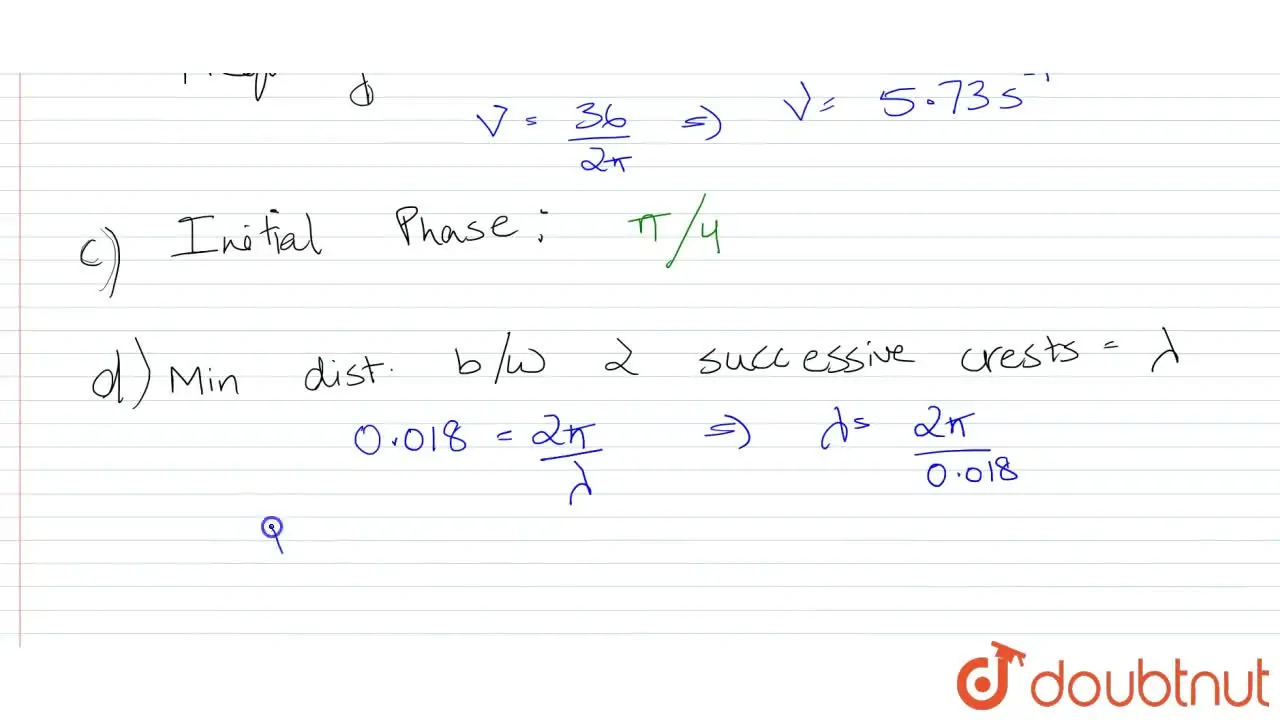 ν = 36/2π ⇒ ν = 5.73 s⁻¹
c) Initial Phase: π/4
d) Min dist. b/w 2 successive crests = λ
0.018 = 2π/λ ⇒ λ = 2π/0.018
doubtnut